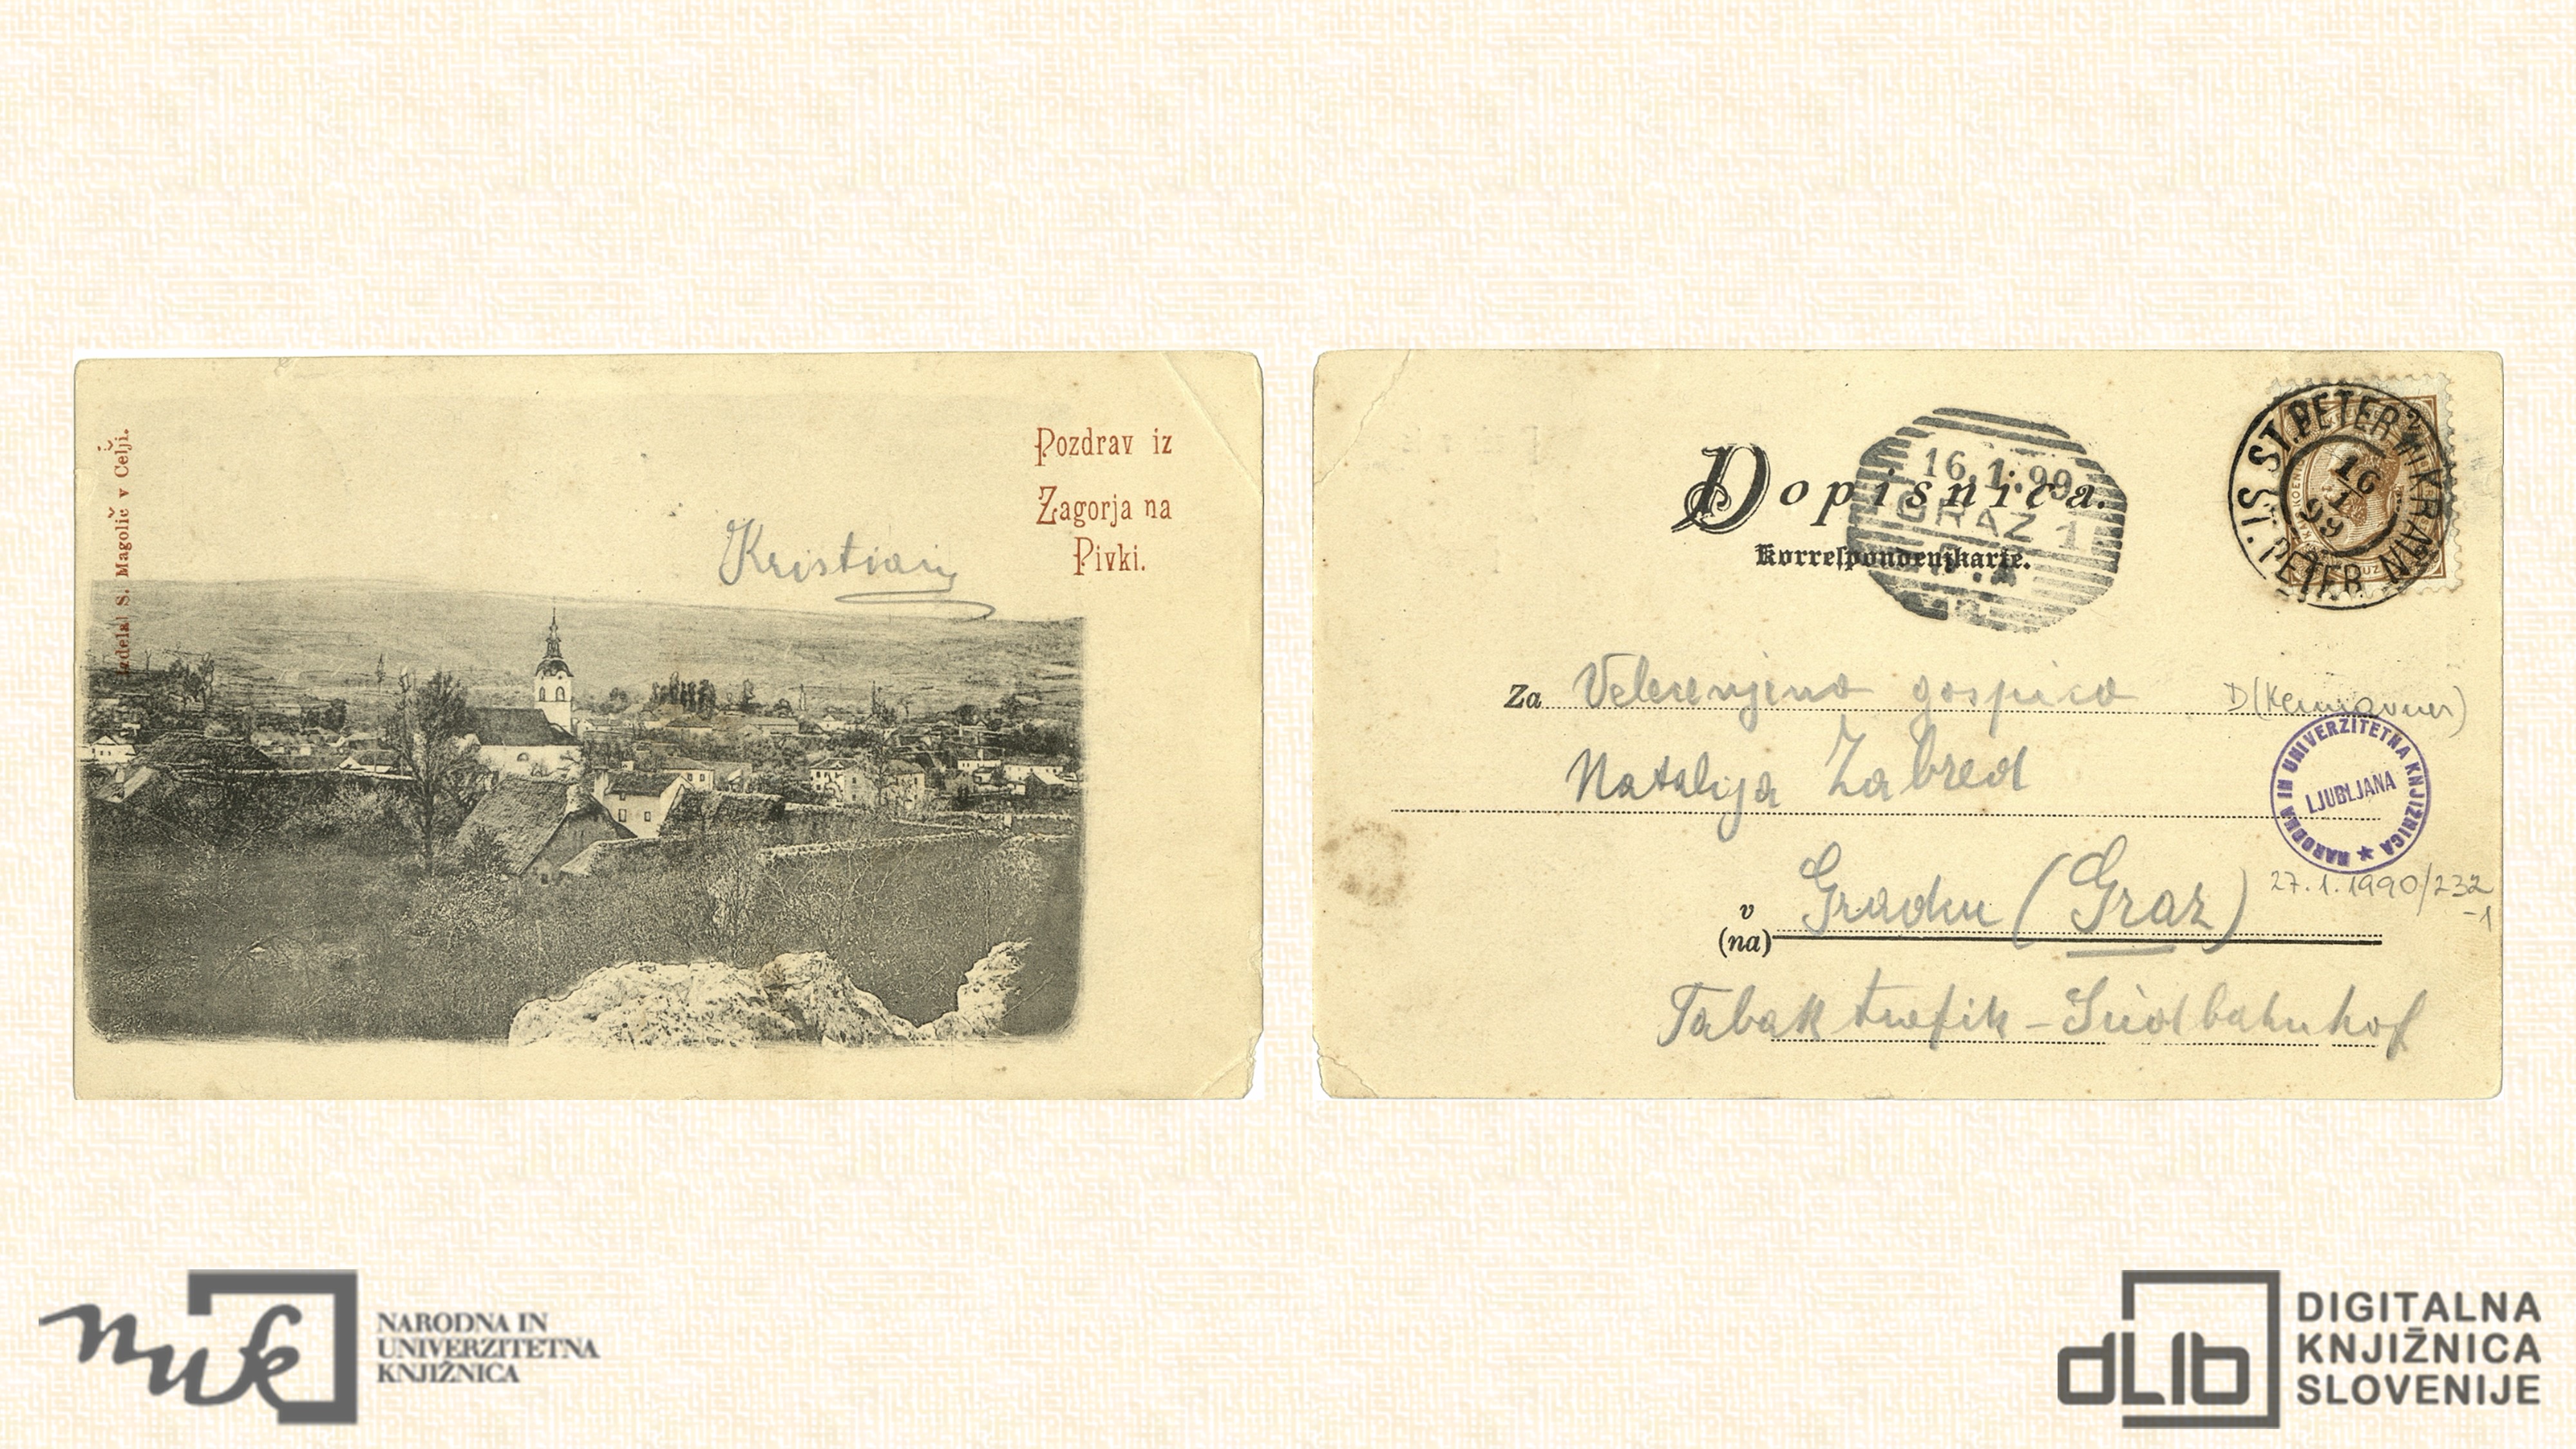 Izdelal S. Magolič v Celji.
Pozdrav iz
Zagorja na
Pivki.
Kristian
Dopisnica.
Korrespondenzkarte.
16.1.99
GRAZ 1
ST. PETER IN KRAIN
16
1
99
ŠT. PETER NA
Za Velecenjeno gospico
Natalija Zabred
v Gradcu (Graz)
(na)
Tabaktrafik - Südbahnhof
NARODNA IN UNIVERZITETNA KNJIŽNICA
LJUBLJANA
27.1.1990/232
-1
nuk
NARODNA IN
UNIVERZITETNA
KNJIŽNICA
dLib
DIGITALNA
KNJIŽNICA
SLOVENIJE